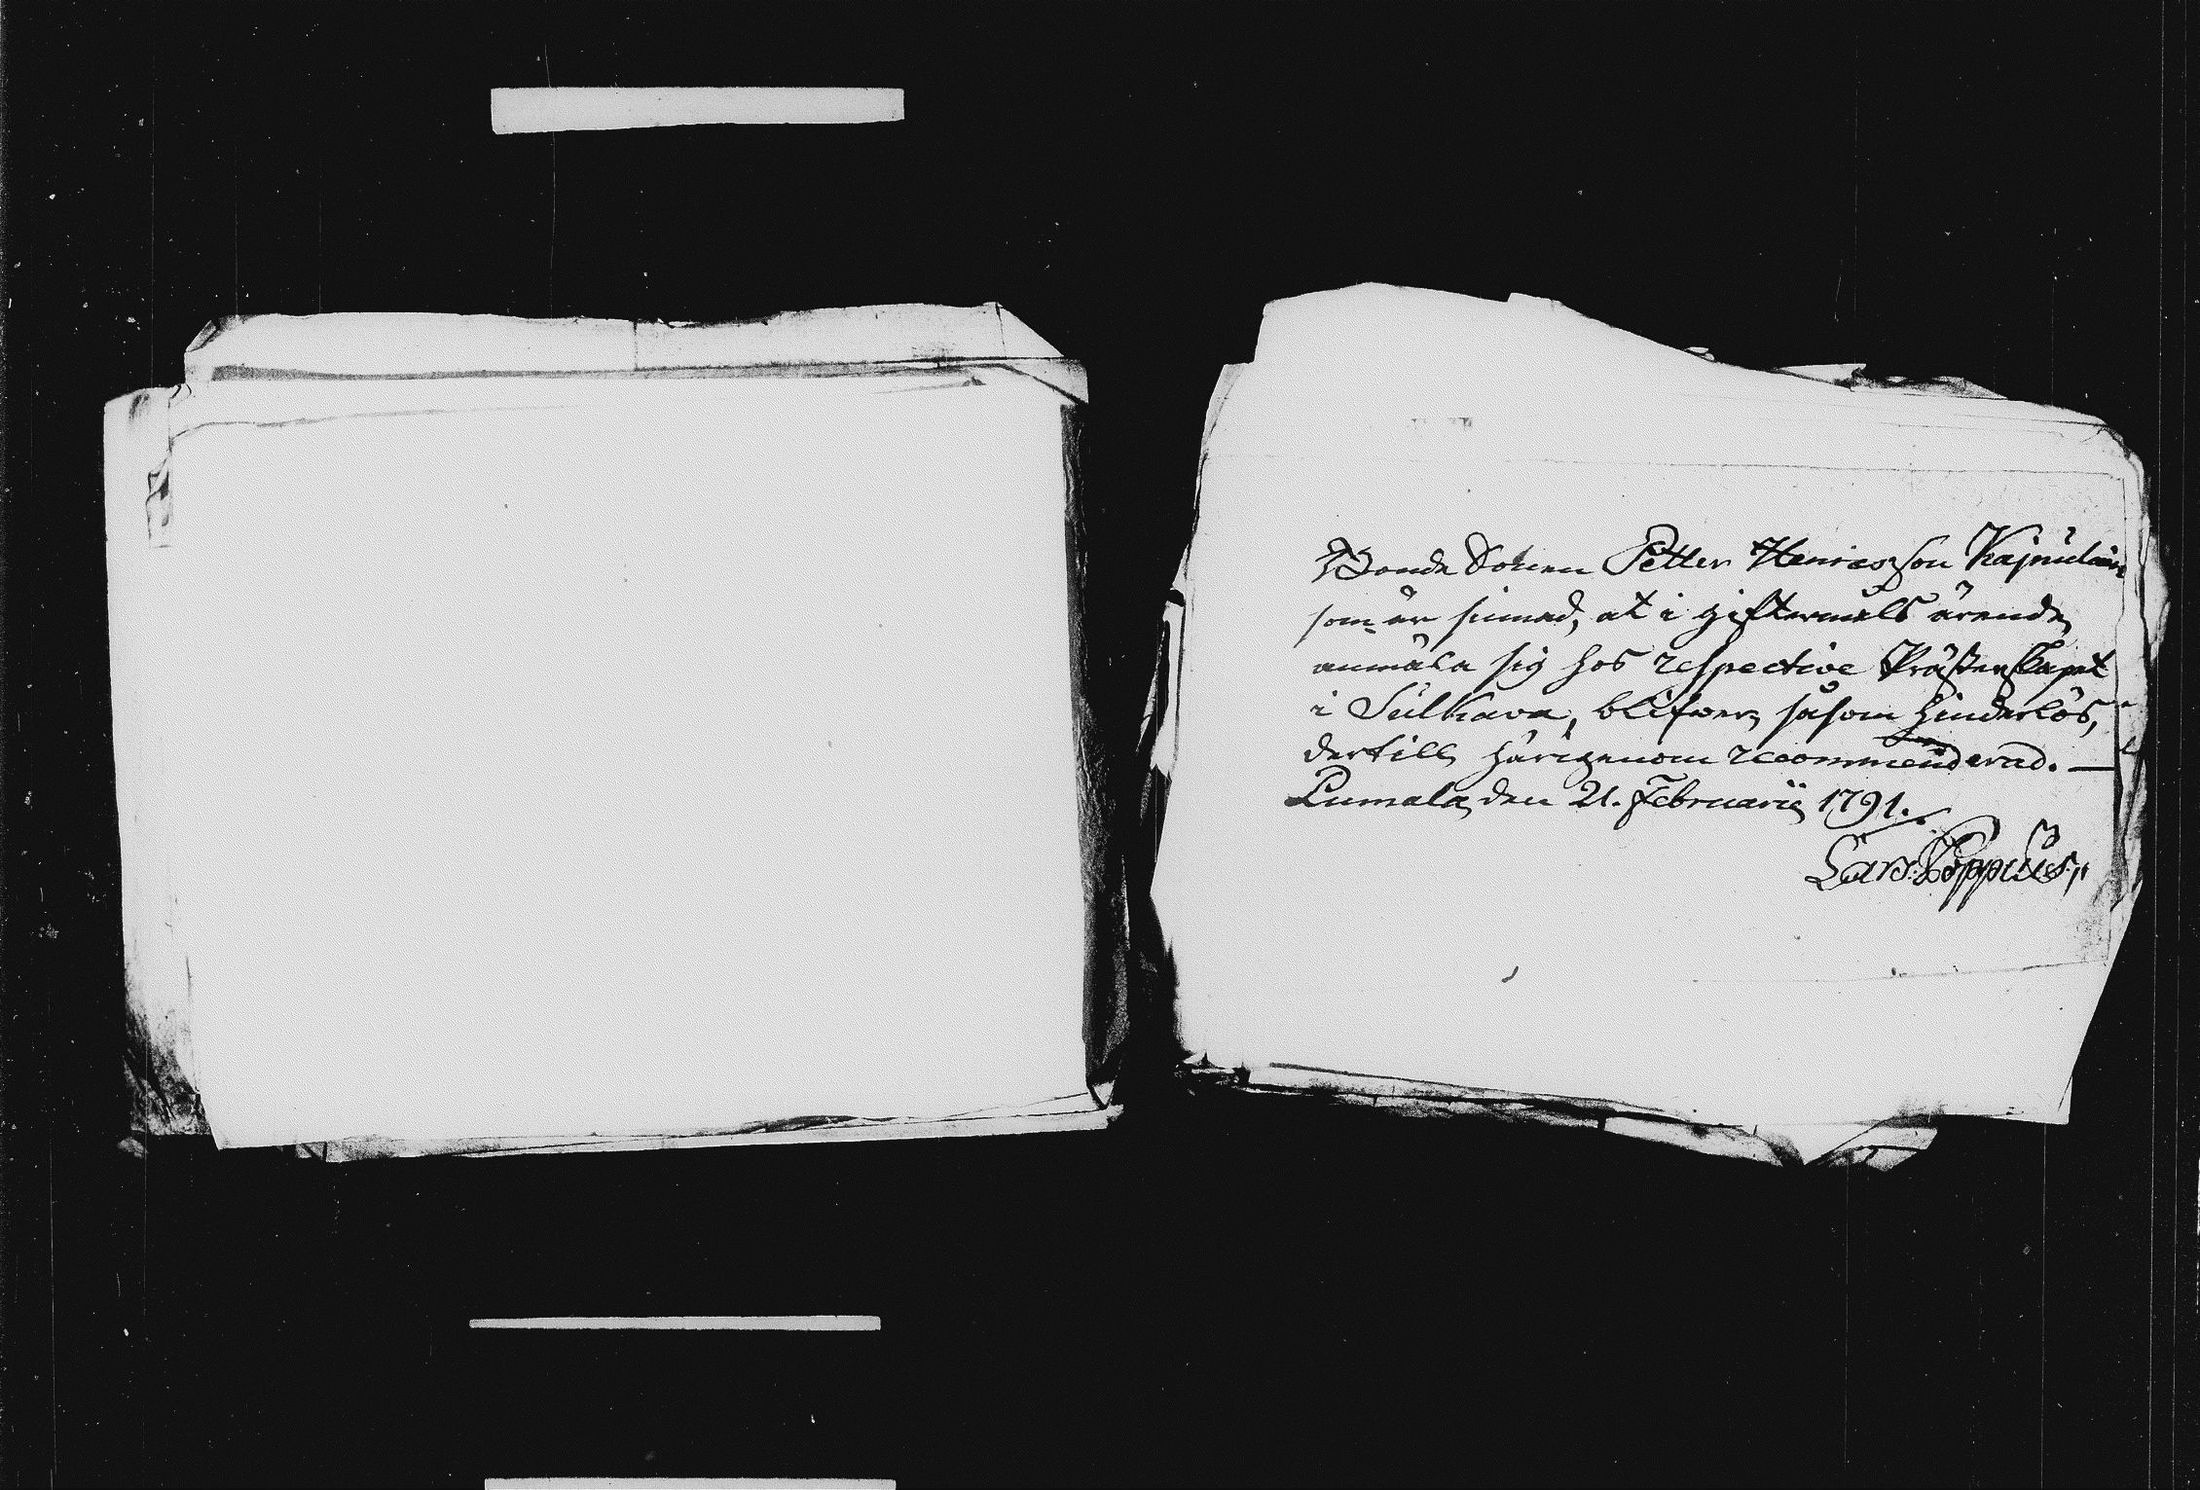 Bonde Sonen Petter Henricsson Kajnulain
som är sinnad, at i giftermåls ärende
anmäla sig hos respective Prästerskapet
i Sulkava, blifwer, såsom hinderlös,
dertill härigenom recommenderad. —
Pumala den 21. Februarii 1791.
Lars Poppius